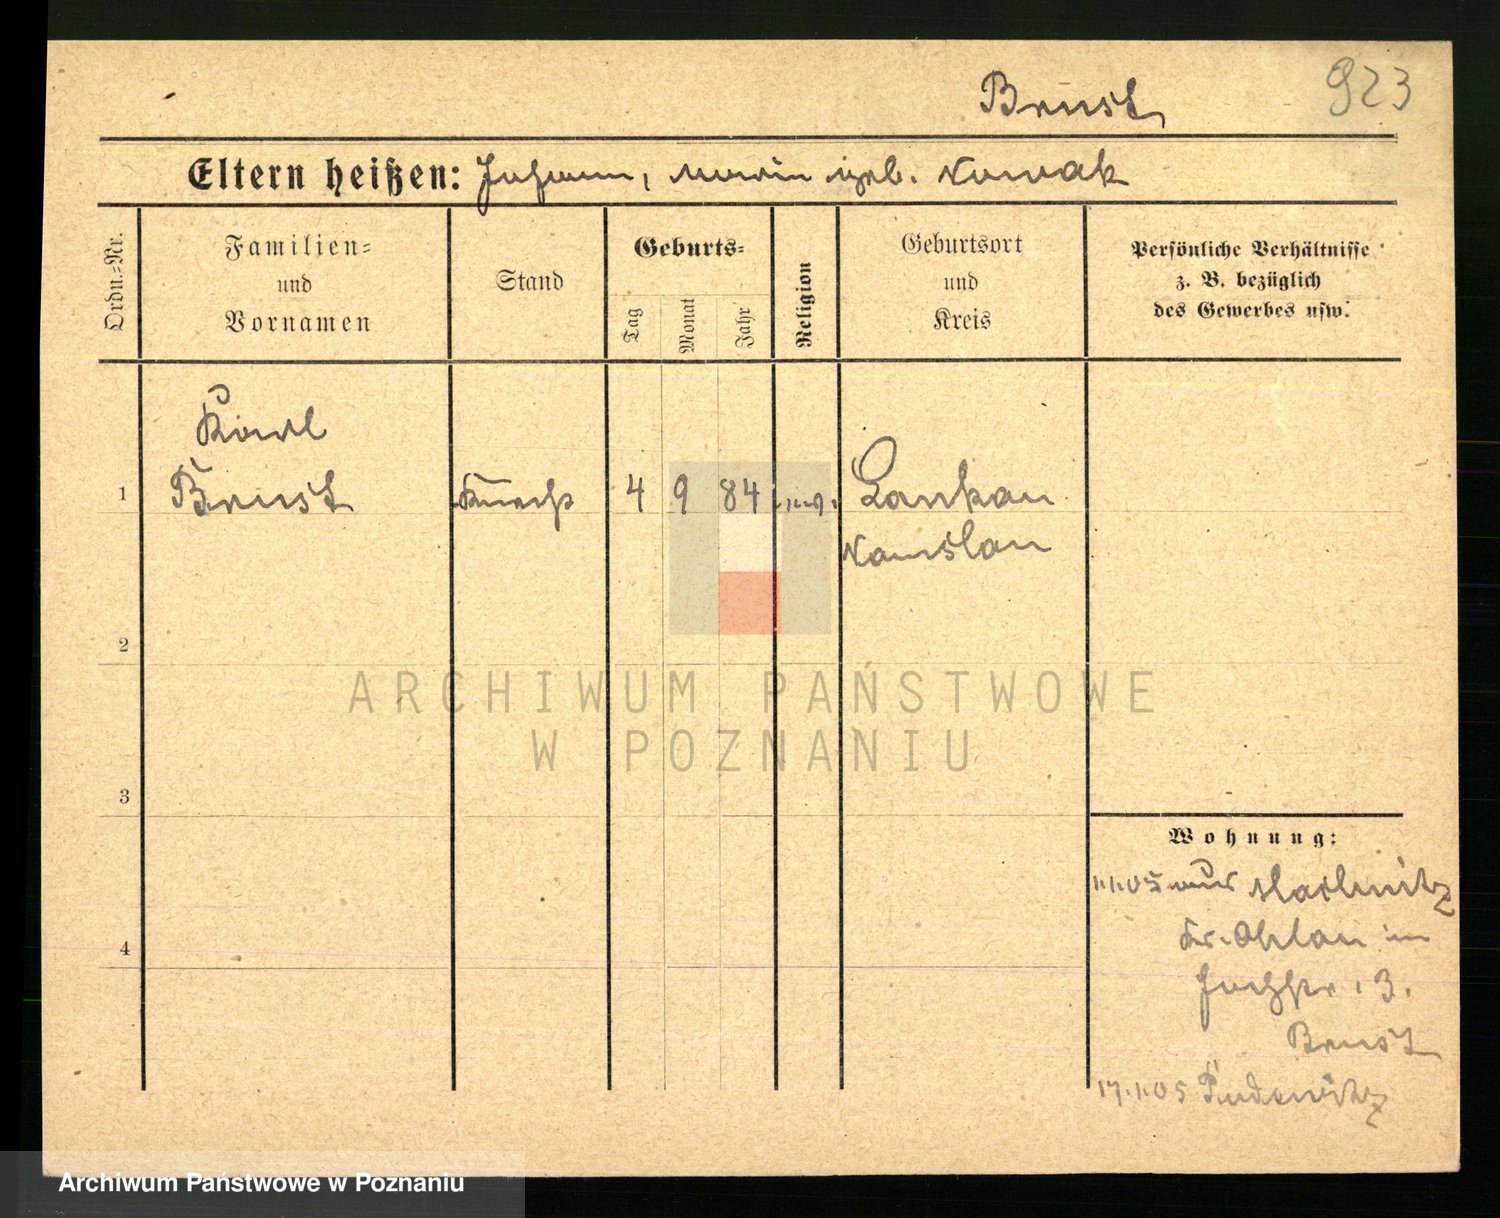 Brust
923
Eltern heißen: Johann, Maria geb. Nowak
Ordn.-Nr.
Familien-
und
Vornamen
Stand
Geburts-
Tag
Monat
Jahr
Religion
Geburtsort
und
Kreis
Persönliche Verhältnisse
z. B. bezüglich
des Gewerbes usw.
Karl
1 Brust Knecht 4 9 84 ev. Lankau
Namslau
2
ARCHIWUM PAŃSTWOWE
W POZNANIU
3
Wohnung:
1.1.05 aus
Kr. Ohlau in
3.
Brust
17.1.05 Pudewitz
4
Archiwum Państwowe w Poznaniu